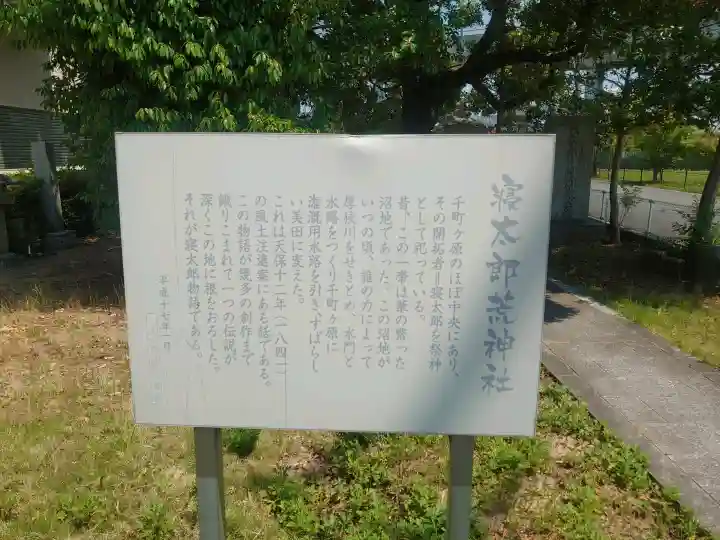 寝太郎荒神社
千町ヶ原のほぼ中央にあり、
その開拓者―寝太郎を祭神
として祀っている。
昔、この一帯は葦の繁った
沼地であった。この沼地が
いつの頃、誰の力によって
厚狭川をせきとめ、水門と
水路をつくり千町ヶ原に
潅漑用水路を引き、すばらし
い美田に変えた。
これは天保十二年(一八四一
の風土注進案にある話である。
この物語が幾多の創作まで
織りこまれて一つの伝説が
深くこの地に根をおろした。
それが寝太郎物語である。
平成十七年一月